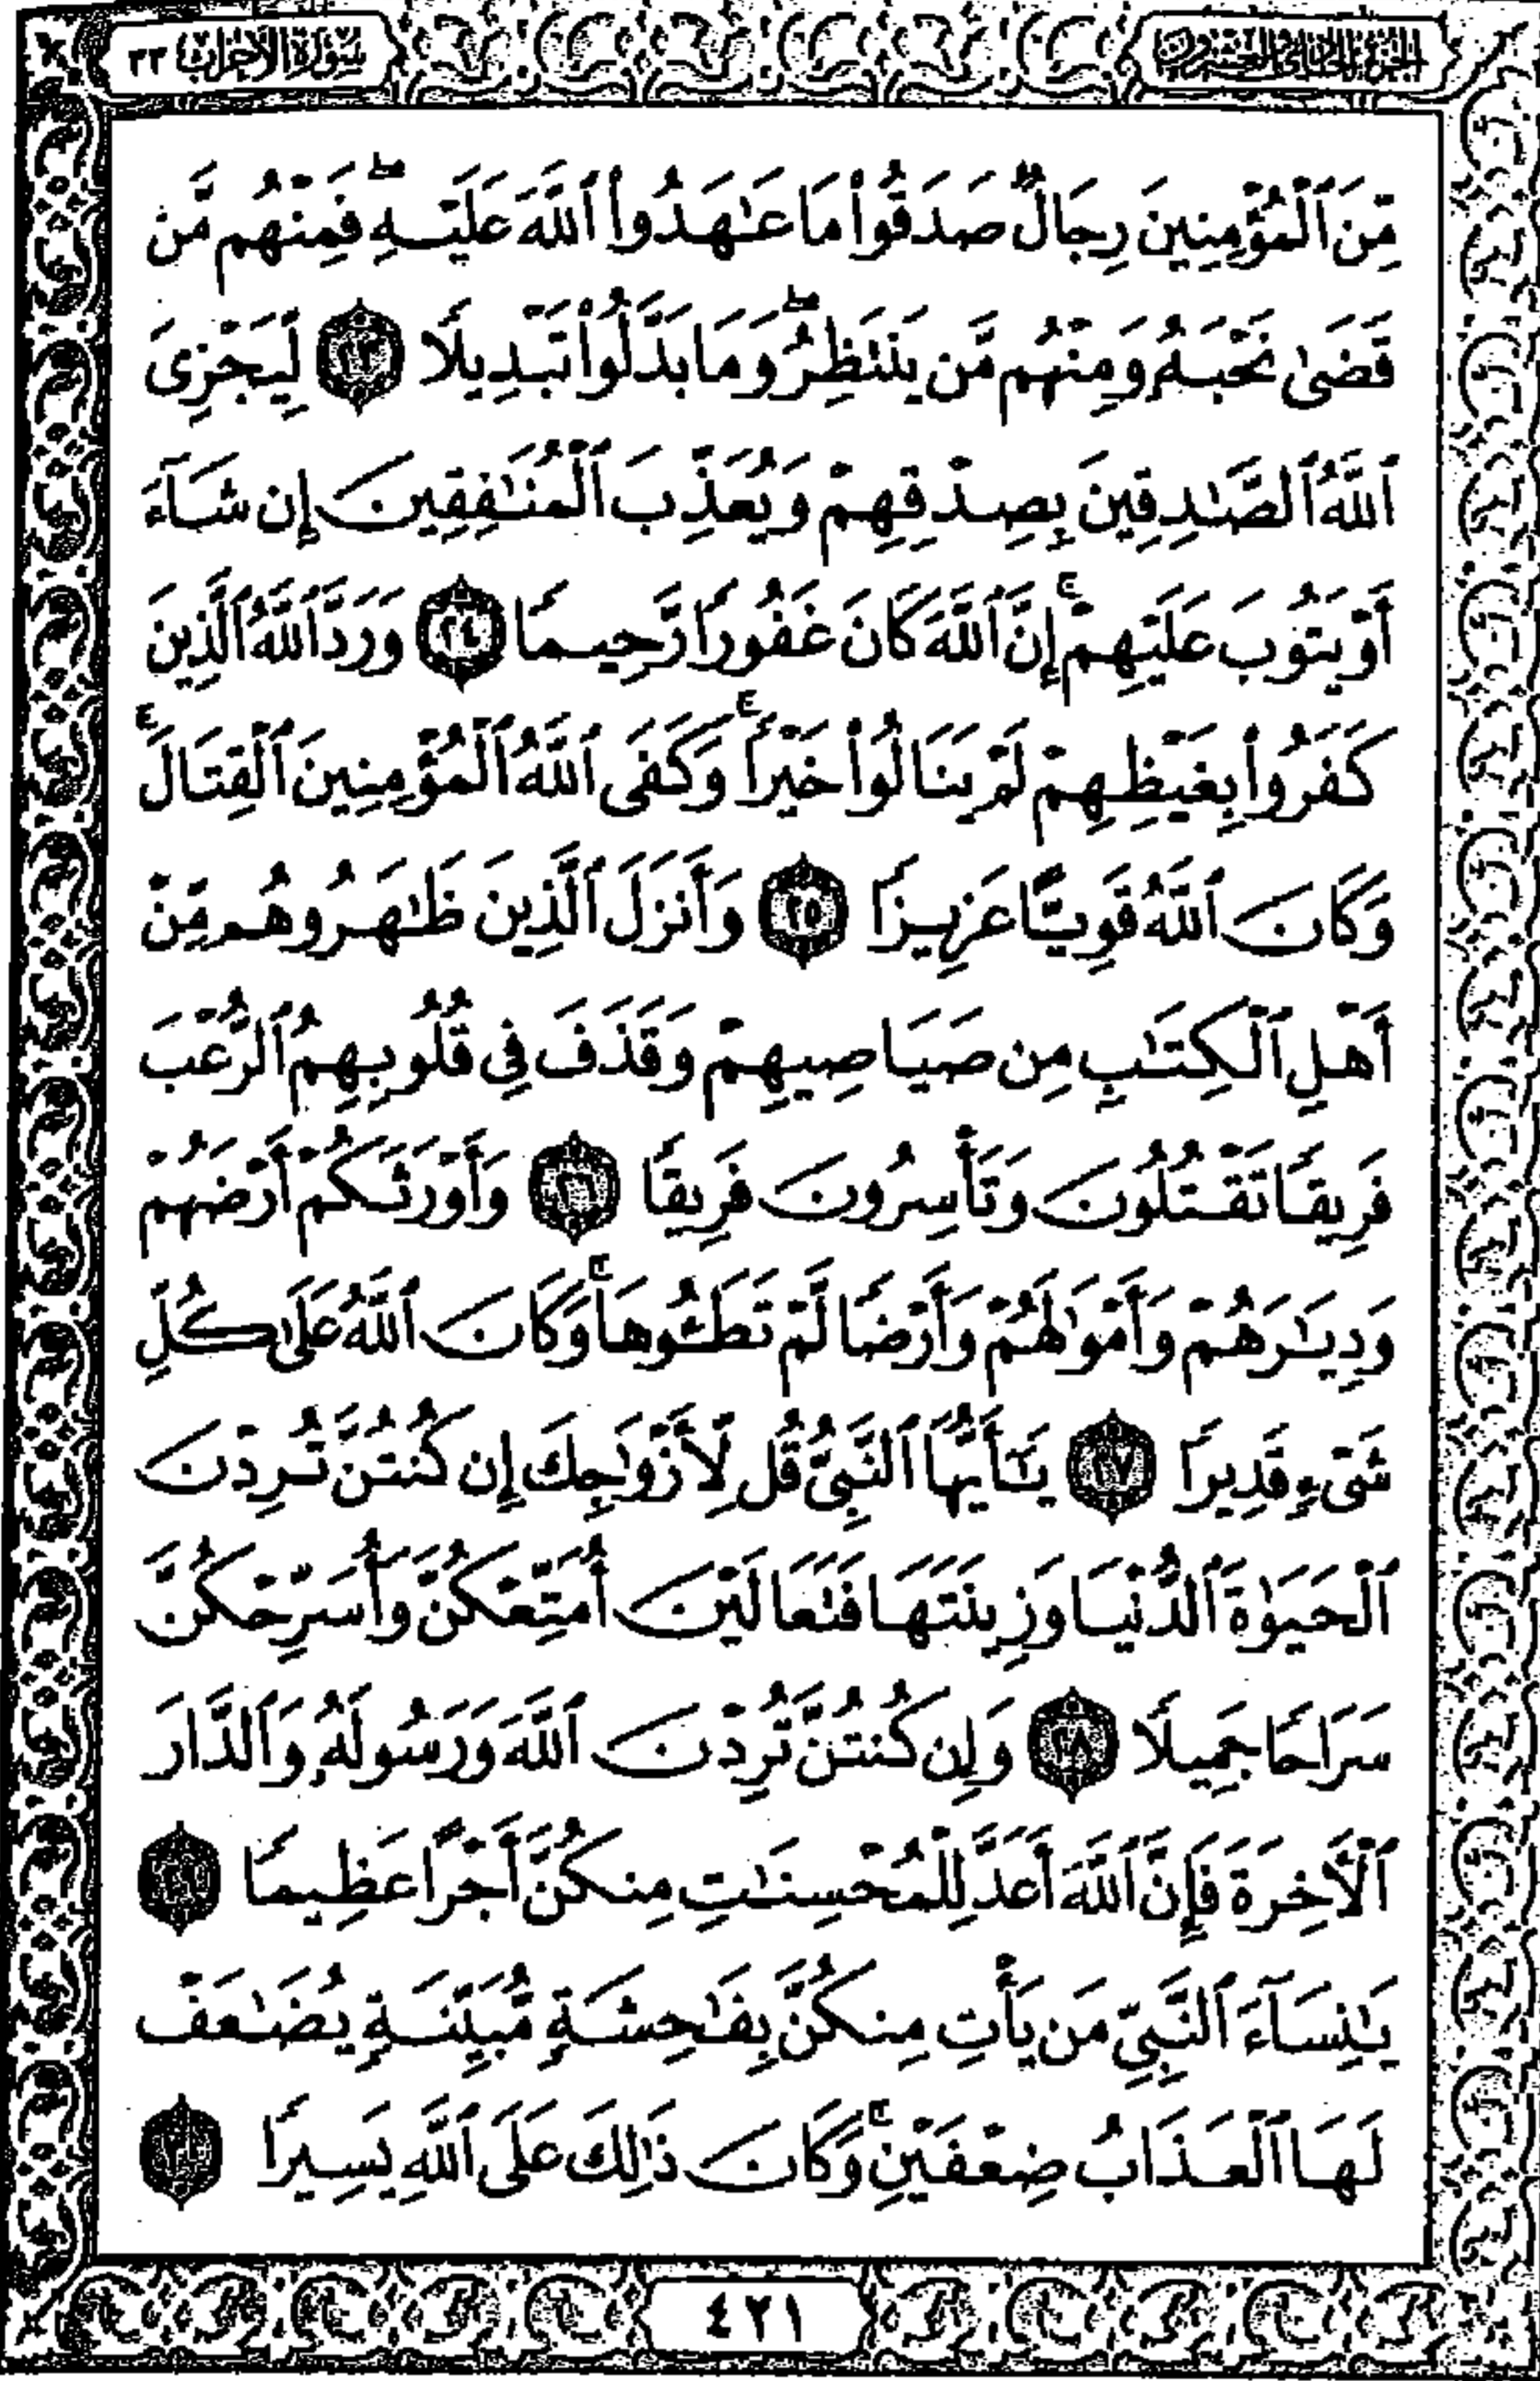 الجزء الحادي والعشرون
سورة الأحزاب ٣٣
مِّنَ ٱلْمُؤْمِنِينَ رِجَالٌ صَدَقُوا۟ مَا عَـٰهَدُوا۟ ٱللَّهَ عَلَيْهِ ۖ فَمِنْهُم مَّن
قَضَىٰ نَحْبَهُۥ وَمِنْهُم مَّن يَنتَظِرُ ۖ وَمَا بَدَّلُوا۟ تَبْدِيلًا ﴿٢٣﴾ لِّيَجْزِىَ
ٱللَّهُ ٱلصَّـٰدِقِينَ بِصِدْقِهِمْ وَيُعَذِّبَ ٱلْمُنَـٰفِقِينَ إِن شَآءَ
أَوْ يَتُوبَ عَلَيْهِمْ ۚ إِنَّ ٱللَّهَ كَانَ غَفُورًا رَّحِيمًا ﴿٢٤﴾ وَرَدَّ ٱللَّهُ ٱلَّذِينَ
كَفَرُوا۟ بِغَيْظِهِمْ لَمْ يَنَالُوا۟ خَيْرًا ۚ وَكَفَى ٱللَّهُ ٱلْمُؤْمِنِينَ ٱلْقِتَالَ ۚ
وَكَانَ ٱللَّهُ قَوِيًّا عَزِيزًا ﴿٢٥﴾ وَأَنزَلَ ٱلَّذِينَ ظَـٰهَرُوهُم مِّنْ
أَهْلِ ٱلْكِتَـٰبِ مِن صَيَاصِيهِمْ وَقَذَفَ فِى قُلُوبِهِمُ ٱلرُّعْبَ
فَرِيقًا تَقْتُلُونَ وَتَأْسِرُونَ فَرِيقًا ﴿٢٦﴾ وَأَوْرَثَكُمْ أَرْضَهُمْ
وَدِيَـٰرَهُمْ وَأَمْوَٰلَهُمْ وَأَرْضًا لَّمْ تَطَـُٔوهَا ۚ وَكَانَ ٱللَّهُ عَلَىٰ كُلِّ
شَىْءٍ قَدِيرًا ﴿٢٧﴾ يَـٰٓأَيُّهَا ٱلنَّبِىُّ قُل لِّأَزْوَٰجِكَ إِن كُنتُنَّ تُرِدْنَ
ٱلْحَيَوٰةَ ٱلدُّنْيَا وَزِينَتَهَا فَتَعَالَيْنَ أُمَتِّعْكُنَّ وَأُسَرِّحْكُنَّ
سَرَاحًا جَمِيلًا ﴿٢٨﴾ وَإِن كُنتُنَّ تُرِدْنَ ٱللَّهَ وَرَسُولَهُۥ وَٱلدَّارَ
ٱلْـَٔاخِرَةَ فَإِنَّ ٱللَّهَ أَعَدَّ لِلْمُحْسِنَـٰتِ مِنكُنَّ أَجْرًا عَظِيمًا ﴿٢٩﴾
يَـٰنِسَآءَ ٱلنَّبِىِّ مَن يَأْتِ مِنكُنَّ بِفَـٰحِشَةٍ مُّبَيِّنَةٍ يُضَـٰعَفْ
لَهَا ٱلْعَذَابُ ضِعْفَيْنِ ۚ وَكَانَ ذَٰلِكَ عَلَى ٱللَّهِ يَسِيرًا ﴿٣٠﴾
٤٢١